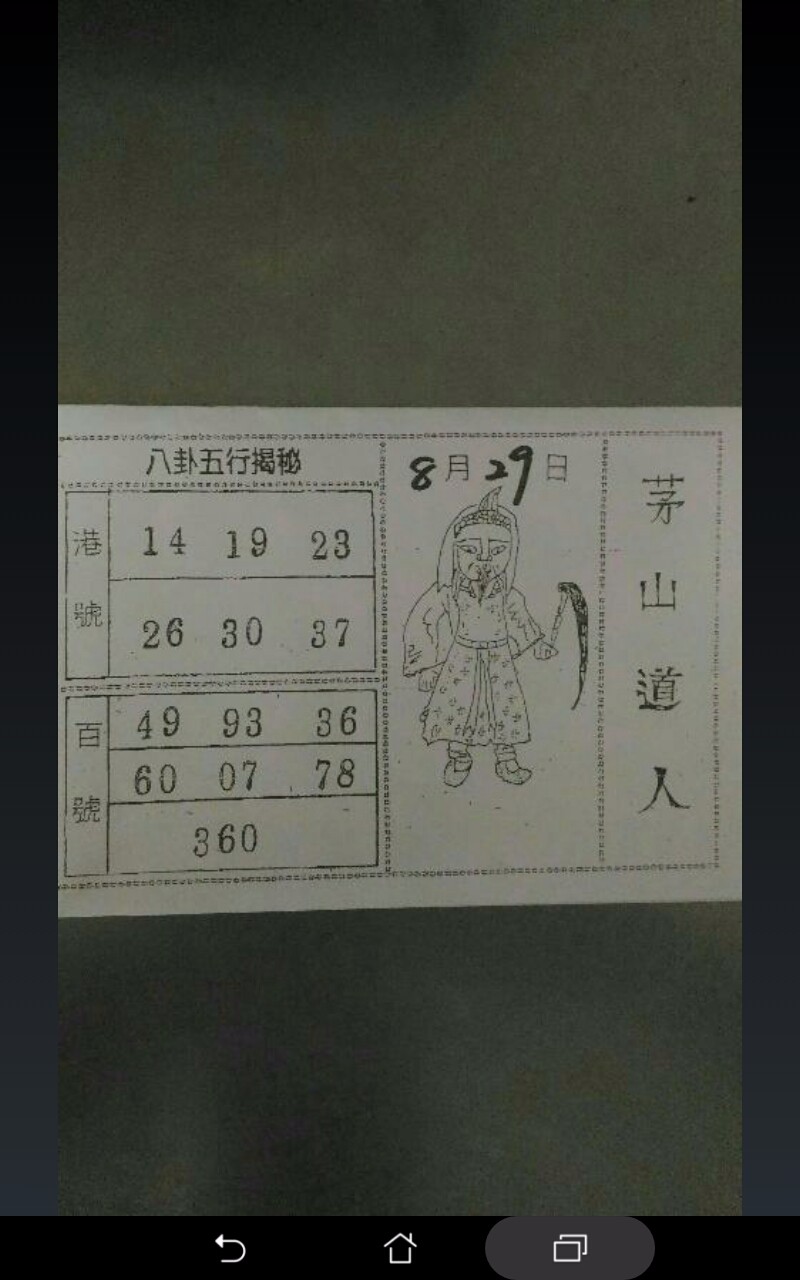 八卦五行揭秘
港號
14 19 23
26 30 37
百號
49 93 36
60 07 78
360
8月29日
茅山道人